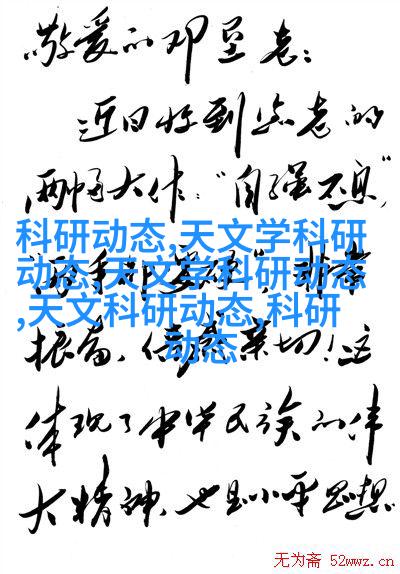 敬爱的邓星老:
近日收到您老的
两幅大作:"自强不息"
科研动态,天文学科研
动态,天文学科研动态
,天文科研动态,科研
动态
振奋、倍感亲切!这
体现了中华民族的伟
大精神,也是小平思想
无为斋 52wwz.cn